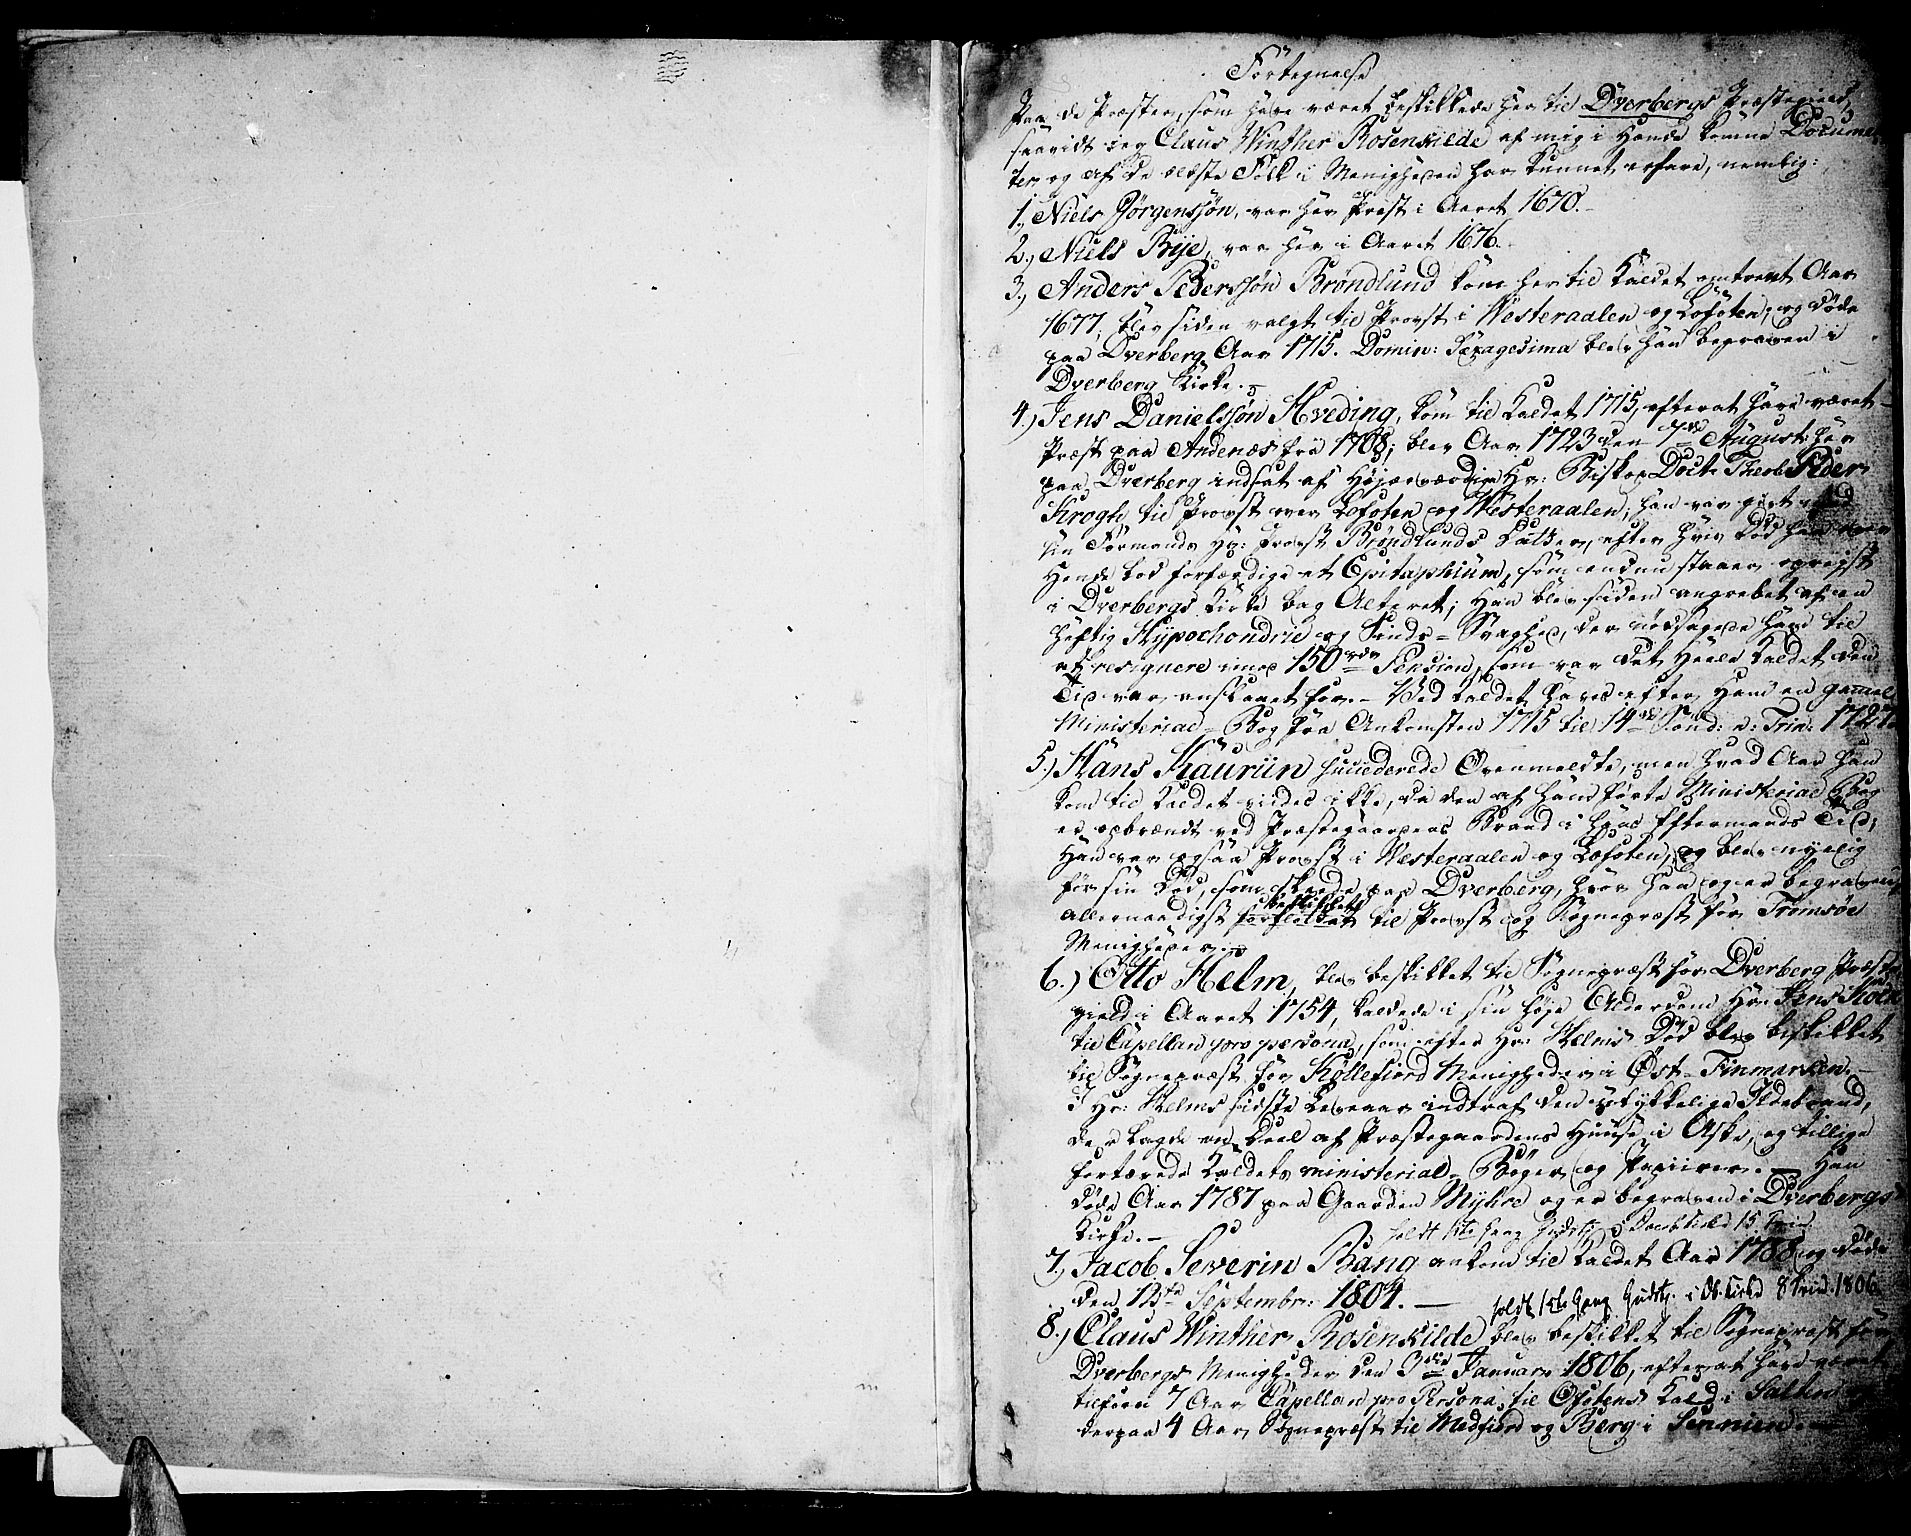 Fortegnelse
Paa de Præster, som have været beskikkede her til Dverbergs Præstegield,
saavidt jeg Claus Winther Rosenkilde af mig i Hænde komne Documen-
ter og af de ældste Folk i Menigheden har kunnet erfare, nemlig:
1.) Niels Jörgenssön, var her Præst i Aaret 1670.
2.) Niels Bye, var her i Aaret 1676.
3.) Anders Pederssøn Brøndlund kom her til Kaldet omtrent Aar
1677, blev siden valgt til Provst i Westeraalen og Lofoten, og døde
paa Dverberg Aar 1715. Domin: Sexagesima blev han begraven i
Dverberg Kirke.
4.) Jens Danielssøn Hveding, kom til Kaldet 1715, efterat have været
Præst paa Andenæs fra 1708; blev Aar 1723 den 7de August her
paa Dverberg indsat af Højærværdige Hr: Biskop Doct: Theol: Peder
Krogh, til Provst over Lofoten og Westeraalen; han var givt med
sin Formands Hr: Provst Brøndlunds Datter, efter hvis Død han over
Hende lod forfærdige et Epitaphium, som endnu staaer opreist
i Dverbergs Kirke bag Alteret; Han blev siden angrebet af en
heftig Hypochondrie og Sinds-Svaghed, der nødsagede ham til
at resignere imod 150 rdr Pension, som var det Heele Kaldet den
Tid var anslaaet for. - Ved Kaldet haves efter Ham en gammel
Ministerial-Bog fra Ankomsten 1715 til 14de Sønd: e: Trin: 1727.
5.) Hans Kauriin succederede Ovenmeldte, men hvad Aar han
kom til Kaldet vides ikke, da den af ham førte Ministerial Bog
er opbrændt ved Præstegaardens Brand i hans Eftermands Tid;
Han var ogsaa Provst i Westeraalen og Lofoten, og blev nyelig
før sin Død, som skeede paa Dverberg, hvor han og er begraven,
allernaadigst beskikket til Provst og Sognepræst for Tromsøe
Menigheder.
6.) Otto Helm, blev beskikket til Sognepræst for Dverberg Præste-
gield i Aaret 1754, kaldede i sin høje Alderdom Hr: Jens Kolb
til Capellan pro persona, som efter Hr: Helms Død blev beskikket
til Sognepræst for Køllefiord Menigheder i Øst-Finmarken. -
I Hr: Helms sidste Leveaar indtraf den ulykkelige Ildebrand,
der lagde en Deel af Præstegaardens Huuse i Aske, og tillige
fortærede Kaldets ministerial-Bøger og Papiirer. - Han
døde Aar 1787 paa Gaarden Myhre og er begraven i Dverbergs
Kirke. -
holdt 1ste Gang Gudstj. i Dverb. Kirke 15 Trin.
7.) Jacob Severin Bang ankom til Kaldet Aar 1788 og døde
den 13te Septembr: 1804. -
holdt 1ste Gang Gudstj. i Db. Kirke 8 Trin. 1806.
8.) Claus Winther Rosenkilde blev beskikket til Sognepræst for
Dverbergs Menigheder den 3die Januar 1806, efterat have været
tilforn 7 Aar Capellan pro Persona til Ofotens Kald i Salten og
derpaa 4 Aar Sognepræst til Medfiord og Berg i Sennien.